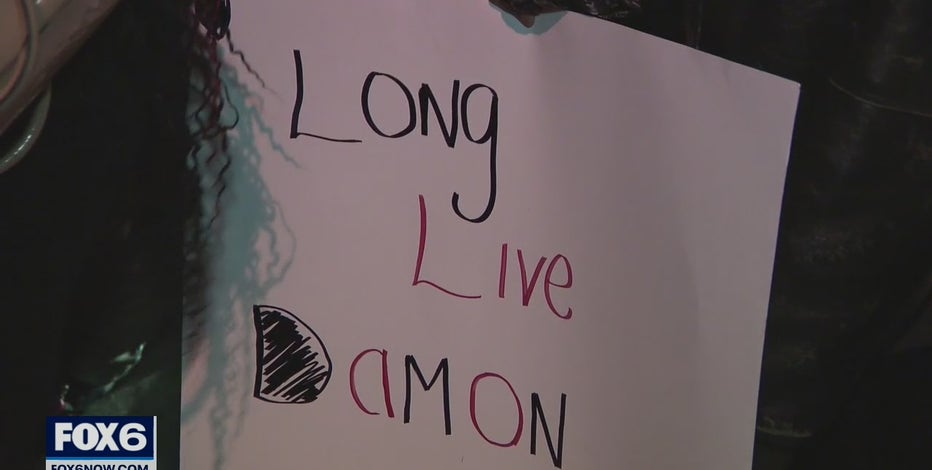 Long
Live
Damon
FOX6
FOX6NOW.COM